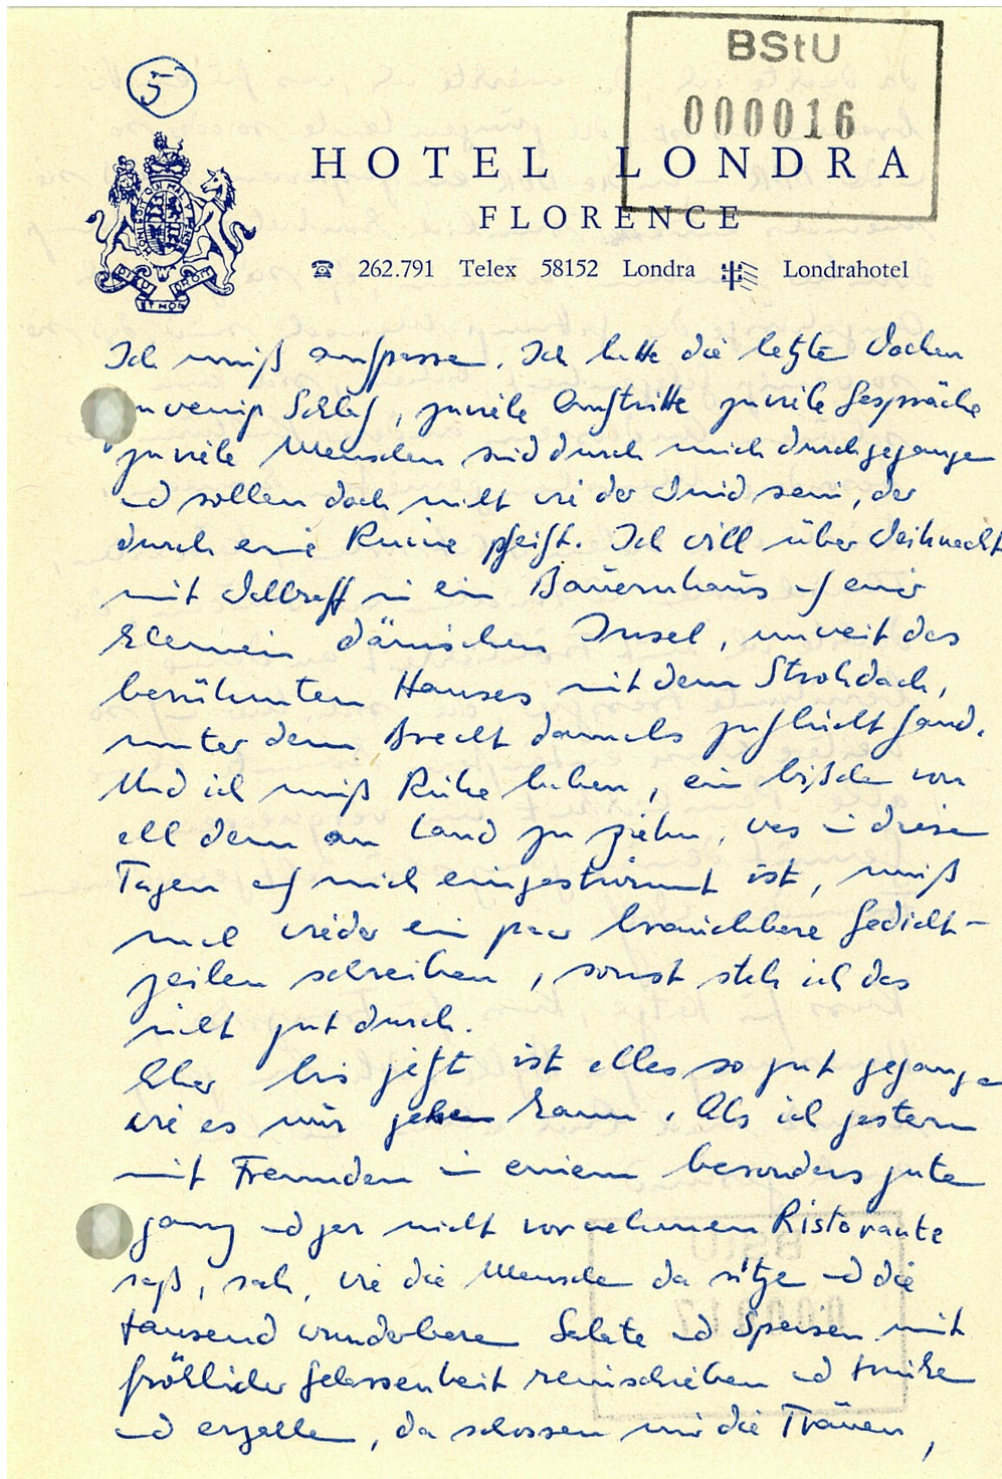 5
BStU
000016
HOTEL LONDRA
FLORENCE
262.791 Telex 58152 Londra Londrahotel
Ich muß aufpassen. Ich hatte die letzte Wochen
zuwenig Schlaf, zuviele Auftritte zuviele Gespräche
zuviele Menschen sind durch mich durchgegangen
und sollen doch nicht wie der Wind sein, der
durch eine Ruine pfeift. Ich will über Weihnacht
mit Wallraff in ein Bauernhaus auf einer
kleinen dänischen Insel, unweit des
berühmten Hauses mit dem Strohdach,
unter dem Brecht damals Zuflucht fand.
Und ich muß Ruhe haben, ein bißchen von
all dem an Land zu ziehn, was in diesen
Tagen auf mich eingestürmt ist, muß
mal wieder ein paar brauchbare Gedicht-
zeilen schreiben, sonst steh ich das
nicht gut durch.
Aber bis jetzt ist alles so gut gegangen
wie es nur gehen kann. Als ich gestern
mit Freunden in einem besonders guten
ganz und gar nicht vornehmen Ristorante
saß, sah, wie die Menschen da sitzen und die
tausend wunderbaren Salate und Speisen mit
fröhlicher Gelassenheit reinschieben und trinken
und erzählen, da schossen mir die Tränen,